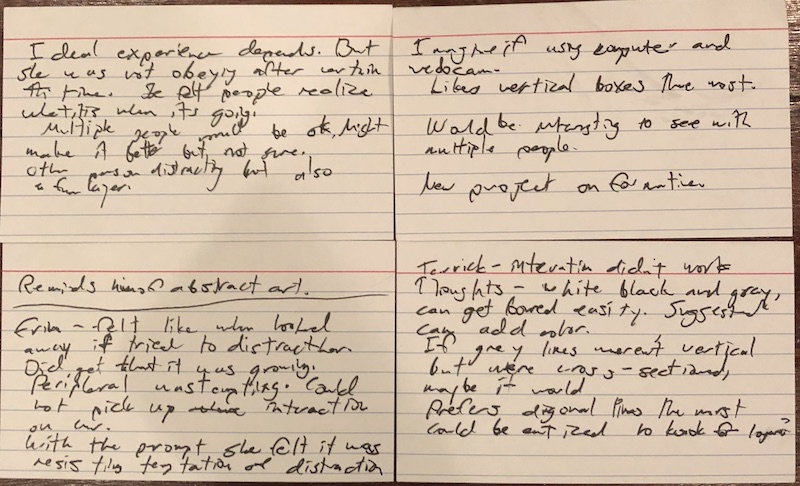 Ideal experience depends. But
she was not obeying after certain
time. She felt people realize
what it is when it's going.
Multiple people would be ok, might
make it better but, not sure.
Other person distracting but also
a fun layer.
Imagine if using computer and
webcam.
Likes vertical boxes the most.
Would be interesting to see with
multiple people.
New project on formation
Reminds him of abstract art.
Erim - felt like when looked
away it tried to distract her.
Did get that it was growing.
Peripheral was tempting. Could
not pick up interaction
on her.
With the prompt she felt it was
resisting temptation of distraction
Terrick - interaction didn't work
Thoughts - white black and gray,
can get bored easily. Suggested
can add color.
If grey lines weren't vertical
but were cross-sectioned,
maybe it would
Prefers diagonal lines the most
could be enticed to look for longer?